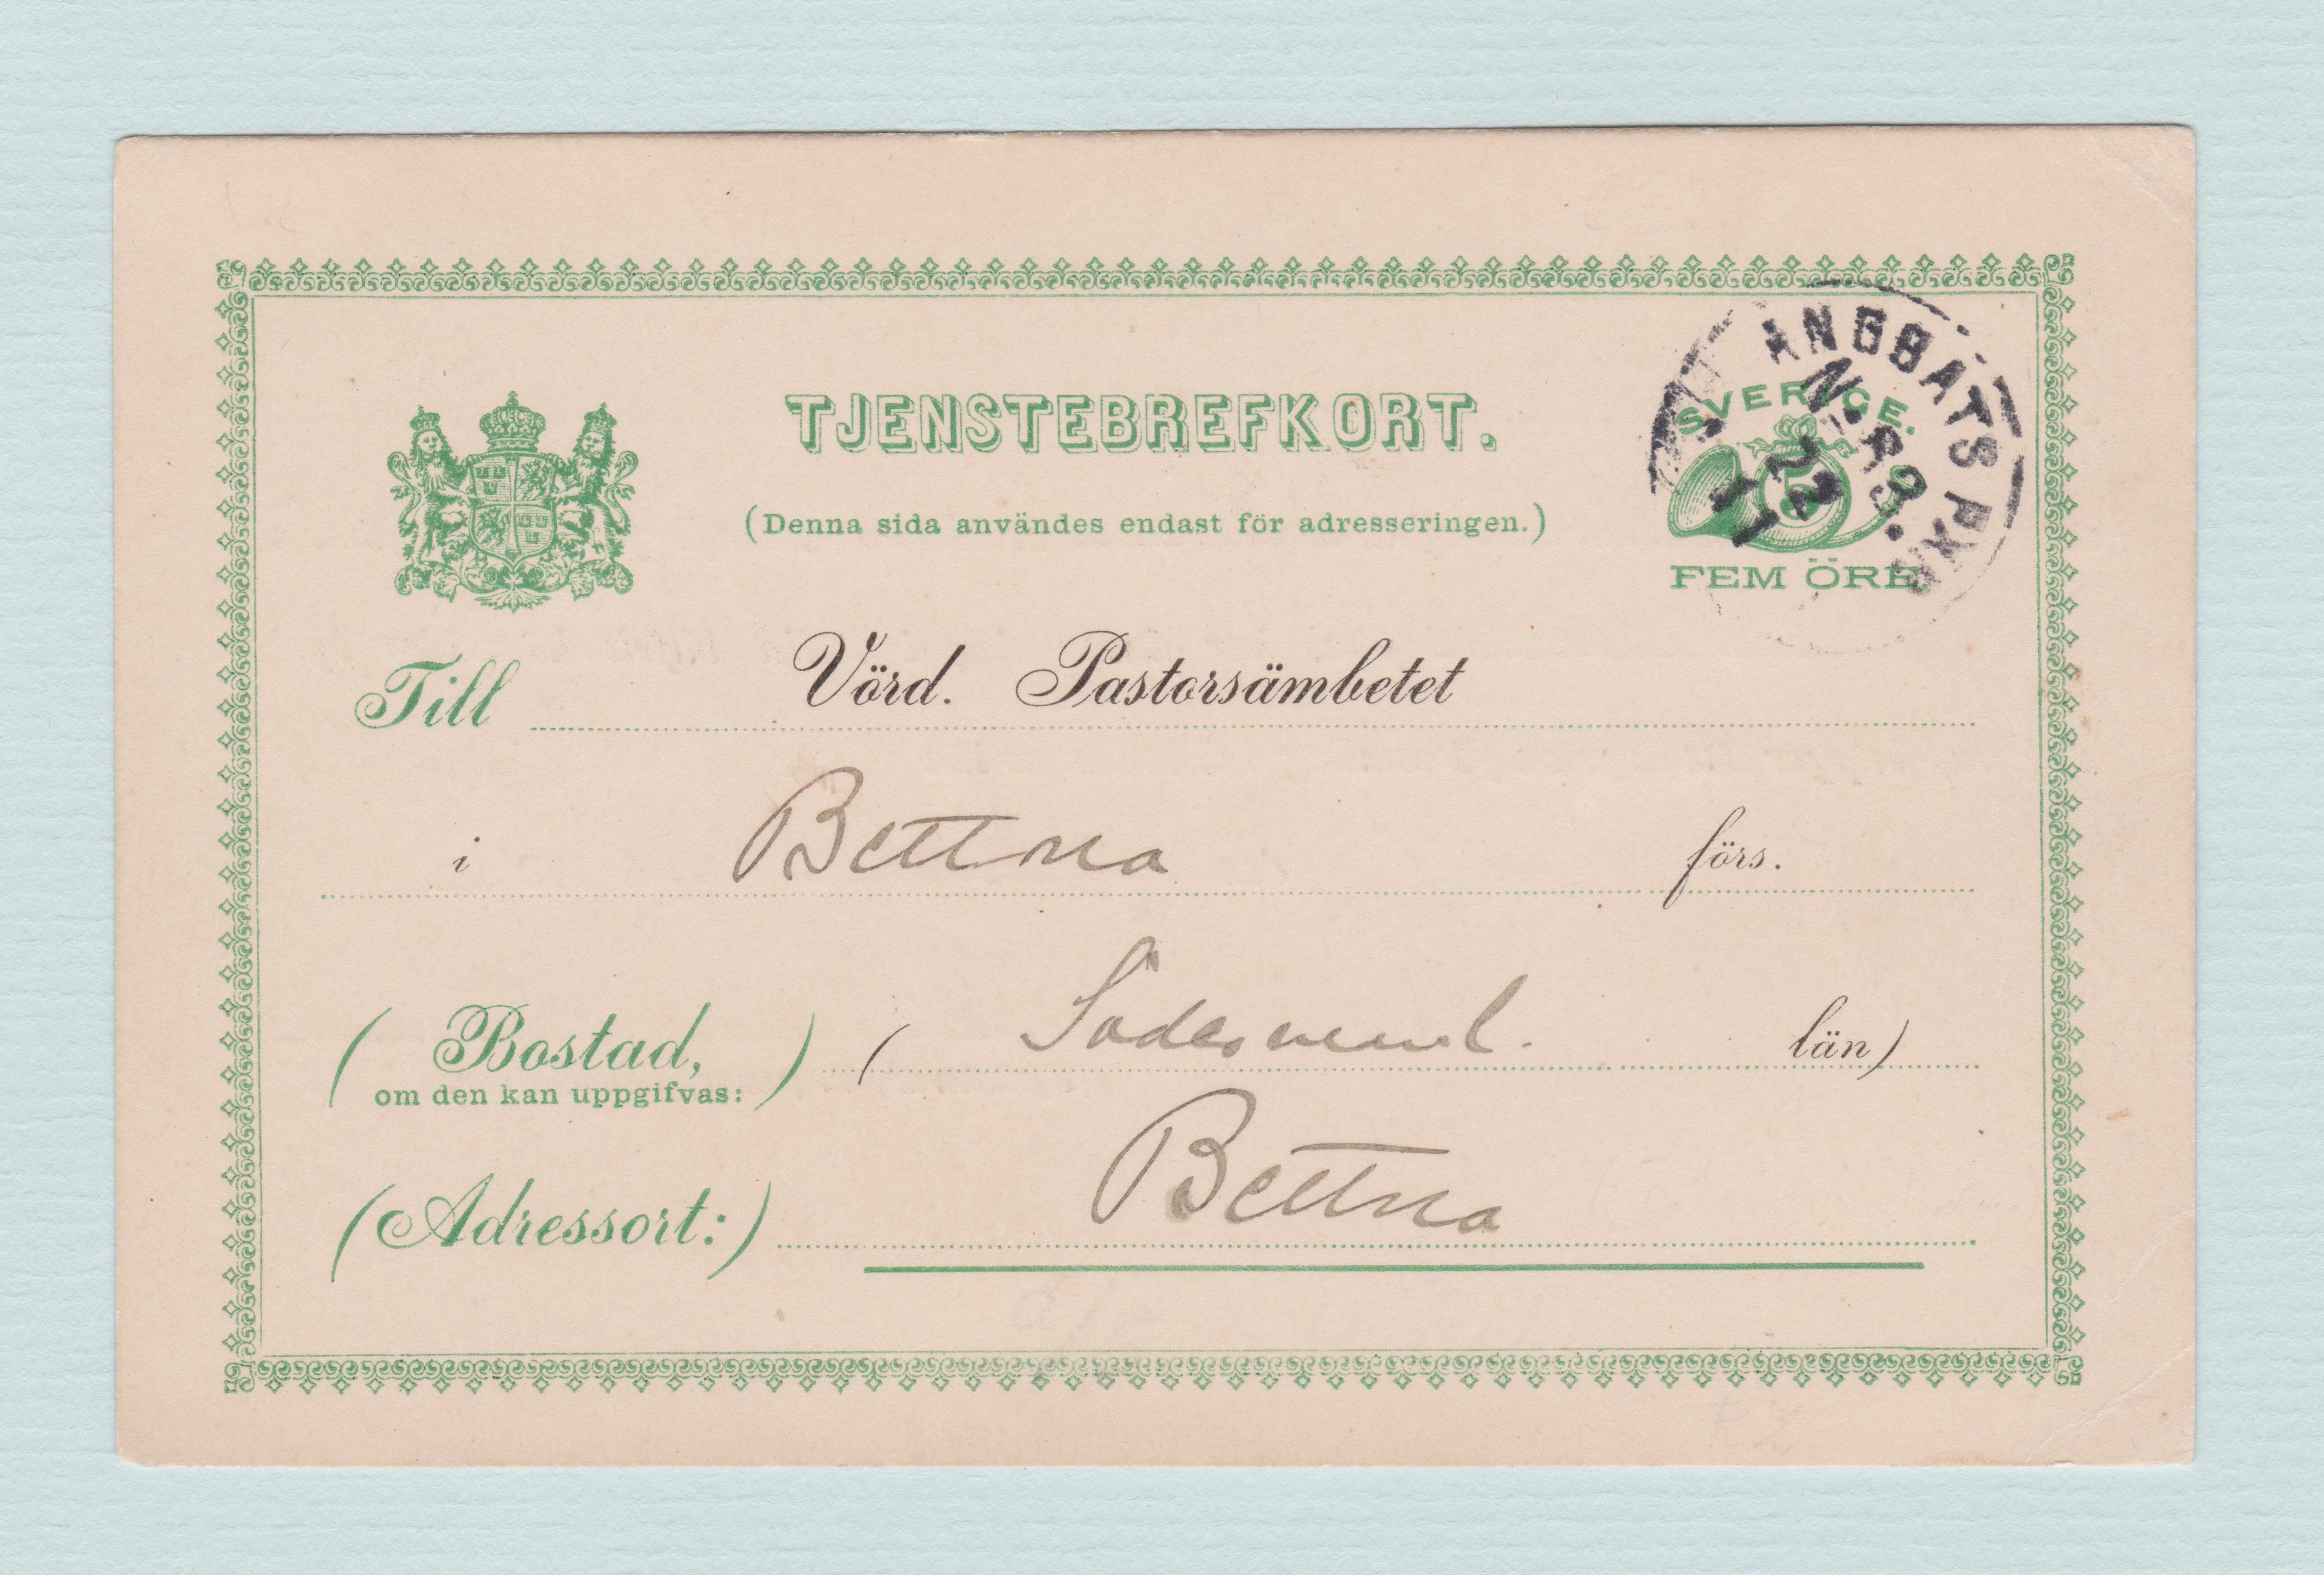 TJENSTEBREFKORT.
(Denna sida användes endast för adresseringen.)
ÅNGBÅTS PXP
Nº 83.
22
11
SVERIGE.
5
FEM ÖRE.
Till Vörd. Pastorsämbetet
i Bettna förs.
(Bostad, om den kan uppgifvas:) (Södermanl. län)
(Adressort:) Bettna